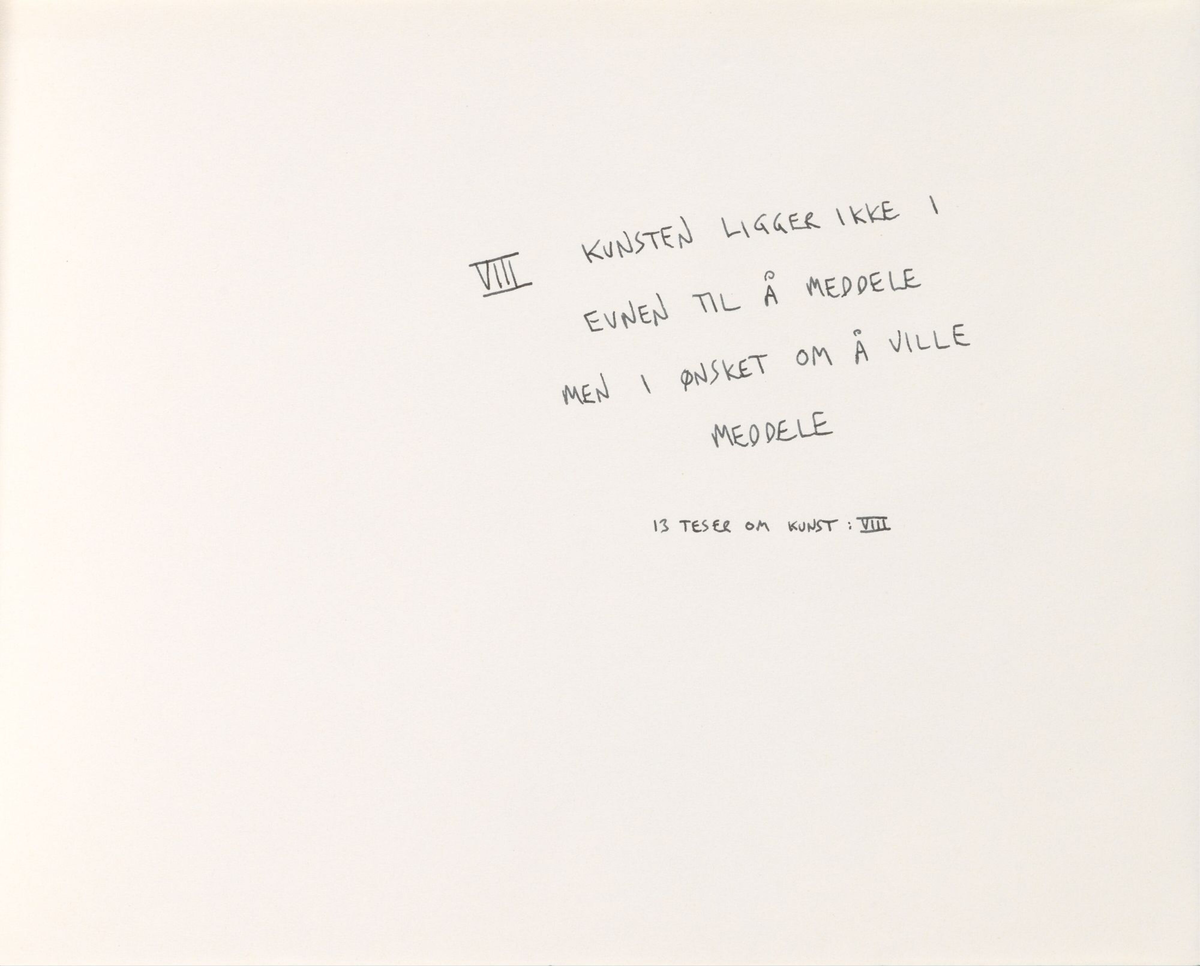 VIII KUNSTEN LIGGER IKKE I
EVNEN TIL Å MEDDELE
MEN I ØNSKET OM Å VILLE
MEDDELE
13 TESER OM KUNST : VIII